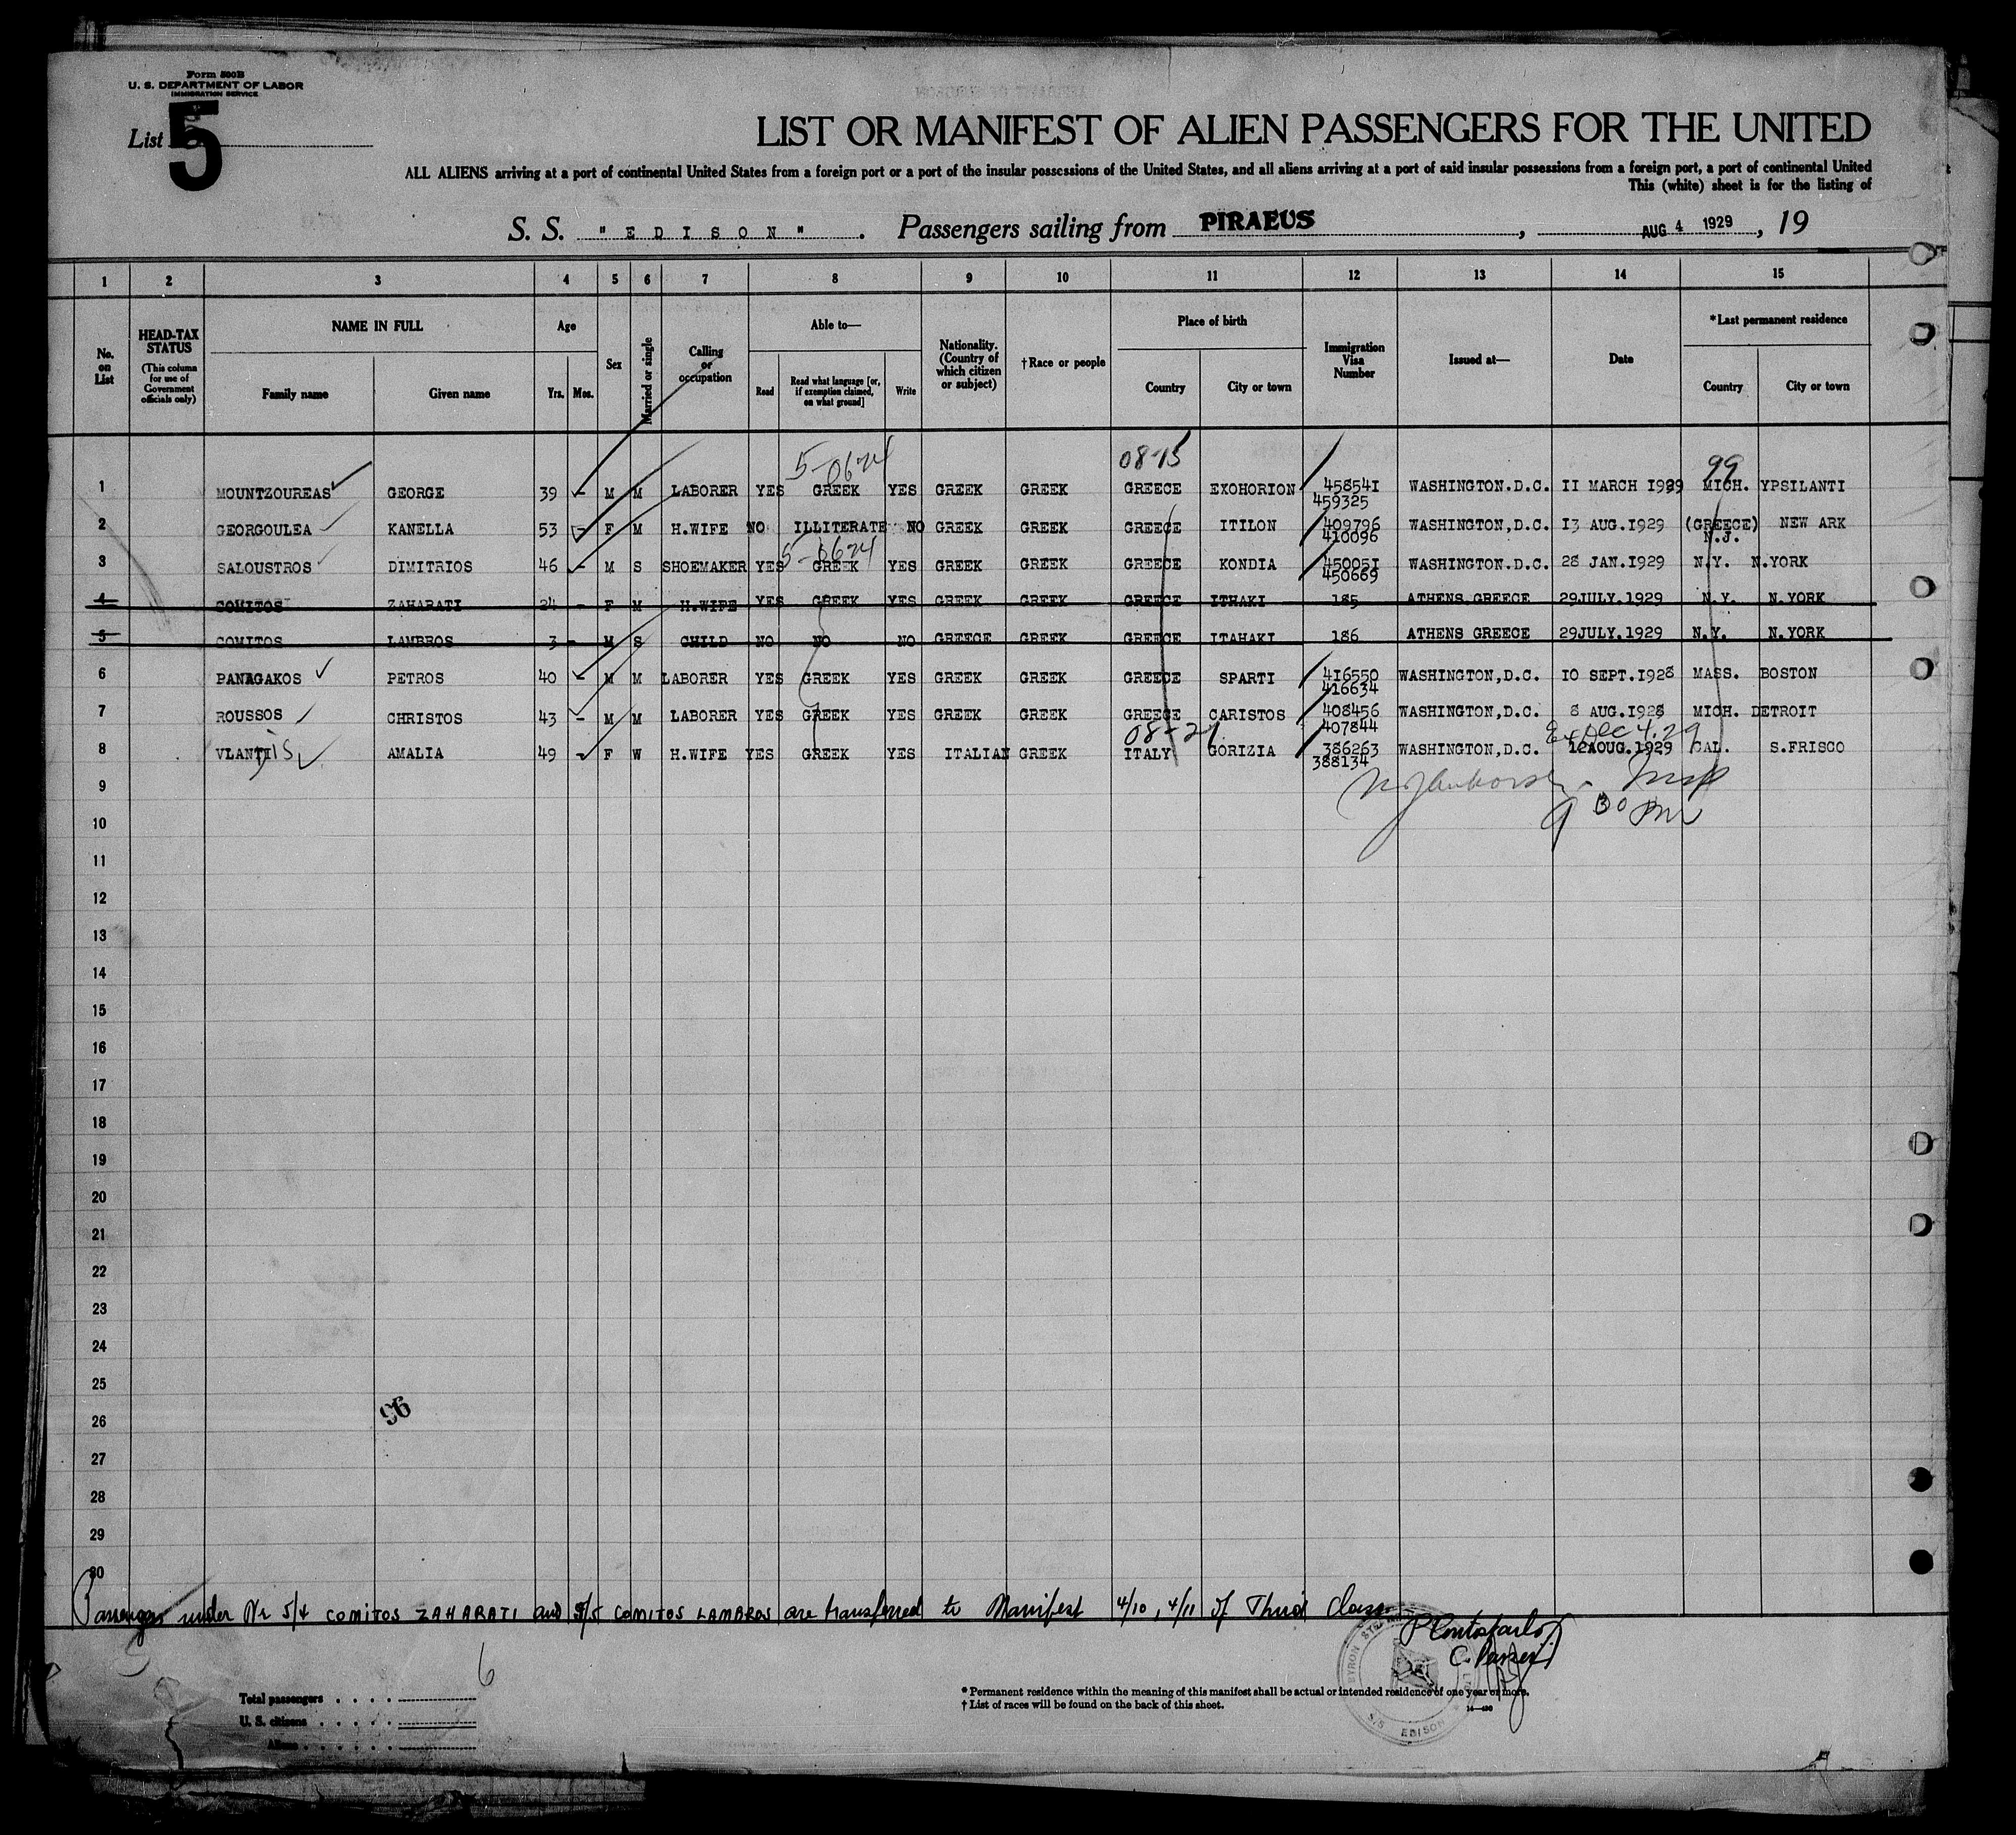 Form 500B
U. S. DEPARTMENT OF LABOR
IMMIGRATION SERVICE
List 5
LIST OR MANIFEST OF ALIEN PASSENGERS FOR THE UNITED
ALL ALIENS arriving at a port of continental United States from a foreign port or a port of the insular possessions of the United States, and all aliens arriving at a port of said insular possessions from a foreign port, a port of continental United
This (white) sheet is for the listing of
S. S. "EDISON". Passengers sailing from PIRAEUS, AUG 4 1929, 19
1 2 3 4 5 6 7 8 9 10 11 12 13 14 15
No. on List
HEAD-TAX STATUS (This column for use of Government officials only)
NAME IN FULL
Family name Given name
Age
Yrs. Mos.
Sex
Married or single
Calling or occupation
Able to—
Read Read what language [or, if exemption claimed, on what ground] Write
Nationality. (Country of which citizen or subject)
†Race or people
Place of birth
Country City or town
Immigration Visa Number
Issued at—
Date
*Last permanent residence
Country City or town
5-0624 08-15 99
1 MOUNTZOUREAS GEORGE 39 - M M LABORER YES GREEK YES GREEK GREEK GREECE EXOHORION 458541 WASHINGTON.D.C. II MARCH 1929 MICH. YPSILANTI
459325
2 GEORGOULEA KANELLA 53 - F M H.WIFE NO ILLITERATE NO GREEK GREEK GREECE ITILON 409796 WASHINGTON,D.C. I3 AUG.I929 (GREECE) NEW ARK
410096 N.J.
5-0624
3 SALOUSTROS DIMITRIOS 46 - M S SHOEMAKER YES GREEK YES GREEK GREEK GREECE KONDIA 45005I WASHINGTON.D.C. 28 JAN.I929 N.Y. N.YORK
450669
4 COMITOS ZAHARATI 24 - F M H.WIFE YES GREEK YES GREEK GREEK GREECE ITHAKI 185 ATHENS GREECE 29JULY.1929 N.Y. N.YORK
5 COMITOS LAMBROS 3 - M S CHILD NO NO NO GREECE GREEK GREECE ITAHAKI 186 ATHENS GREECE 29JULY.1929 N.Y. N.YORK
6 PANAGAKOS PETROS 40 - M M LABORER YES GREEK YES GREEK GREEK GREECE SPARTI 416550 WASHINGTON,D.C. IO SEPT.I928 MASS. BOSTON
416634
7 ROUSSOS CHRISTOS 43 - M M LABORER YES GREEK YES GREEK GREEK GREECE CARISTOS 408456 WASHINGTON,D.C. 8 AUG.I928 MICH. DETROIT
08-21 407844 Ex Dec 4.29
8 VLANTIS AMALIA 49 - F W H.WIFE YES GREEK YES ITALIAN GREEK ITALY GORIZIA 386263 WASHINGTON,D.C. 12AOUG.1929 CAL. S.FRISCO
388134
9
9 30 PM
10
11
12
13
14
15
16
17
18
19
20
21
22
23
24
25
96
26
27
28
29
30
Passenger under Nr 5/4 COMITOS ZAHARATI and 5/5 COMITOS LAMBROS are transferred to Manifest 4/10, 4/11 of Third Class
6
Total passengers
U. S. citizens
Aliens
* Permanent residence within the meaning of this manifest shall be actual or intended residence of one year or more.
† List of races will be found on the back of this sheet.
S/S EDISON